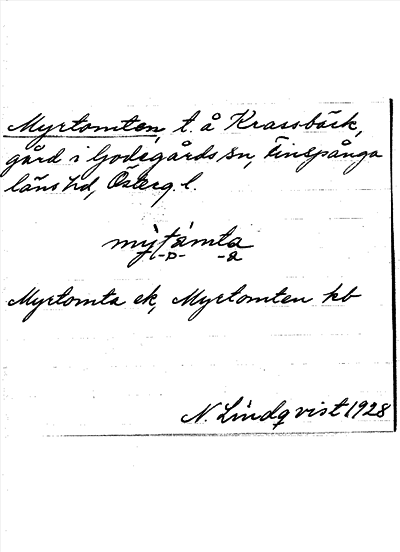 Myrtomten, t. å Krassbäck,
gård i Godegårds sn, Finspånga
läns hd, Österg. l.
mỳtåmta
-p- -a
Myrtomta ek, Myrtomten kb
N. Lindqvist 1928